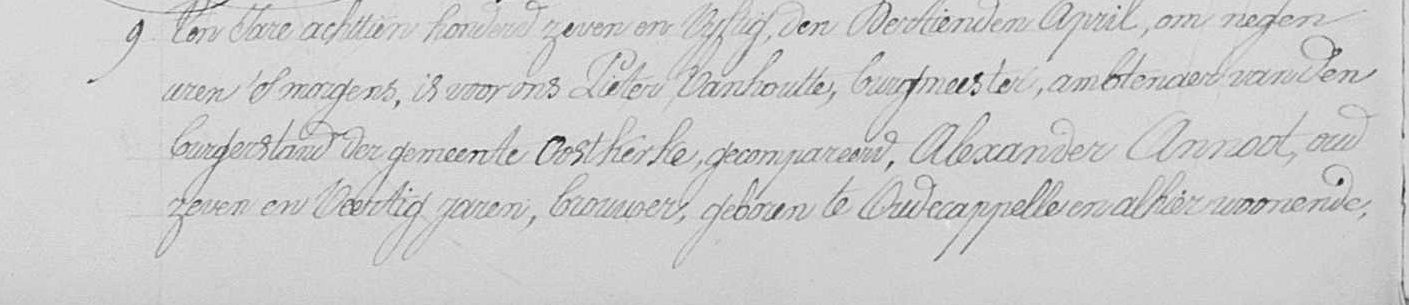 9 Ten Jare achttien honderd zeven en Vyftig, den Dertienden April, om negen
uren 's morgens, is voor ons Pieter Vanhoutte, burgmeester, ambtenaer van den
burgerstand der gemeente Oostkerke, gecompareerd, Alexander Annoot, oud
zeven en Veertig jaren, brouwer, geboren te Oudecappelle en alhier woonende,